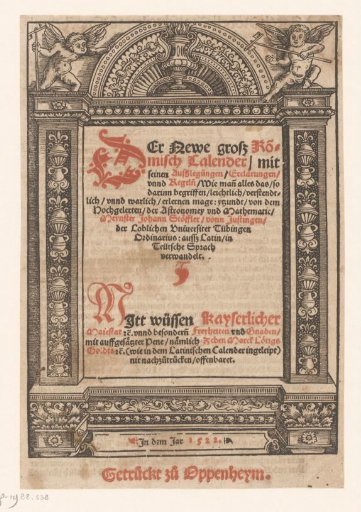 DEr Newe groß Rö-
misch Calender / mit
seinen Außlegungen / Erclärungen /
vnnd Regeln / Wie man alles das / so
darinn begriffen / leichtlich / verstende-
lich / vnnd warlich / erlernen mage: yetunde / von dem
Hochgelerten / der Astronomey vnd Mathematic /
Meyster Johann Stöffler / vonn Justingen /
der Loblichen Vniuersitet Tübingen
Ordinarius: aussz Latin / in
Teütsche Sprach
verwandelt.
MItt wüssen Kayserlicher
Maiestat ꝛc. vnnd besondern Freyheiten vnd Gnaden /
mit auffgesatzter Pene / nämlich Zehen Marck Lötigs
Golds ꝛc. (wie in dem Latinischen Calender ingeleipt)
nit nachzütrücken / offenbaret.
In dem Jar 1522.
Getrückt zů Oppenheym.